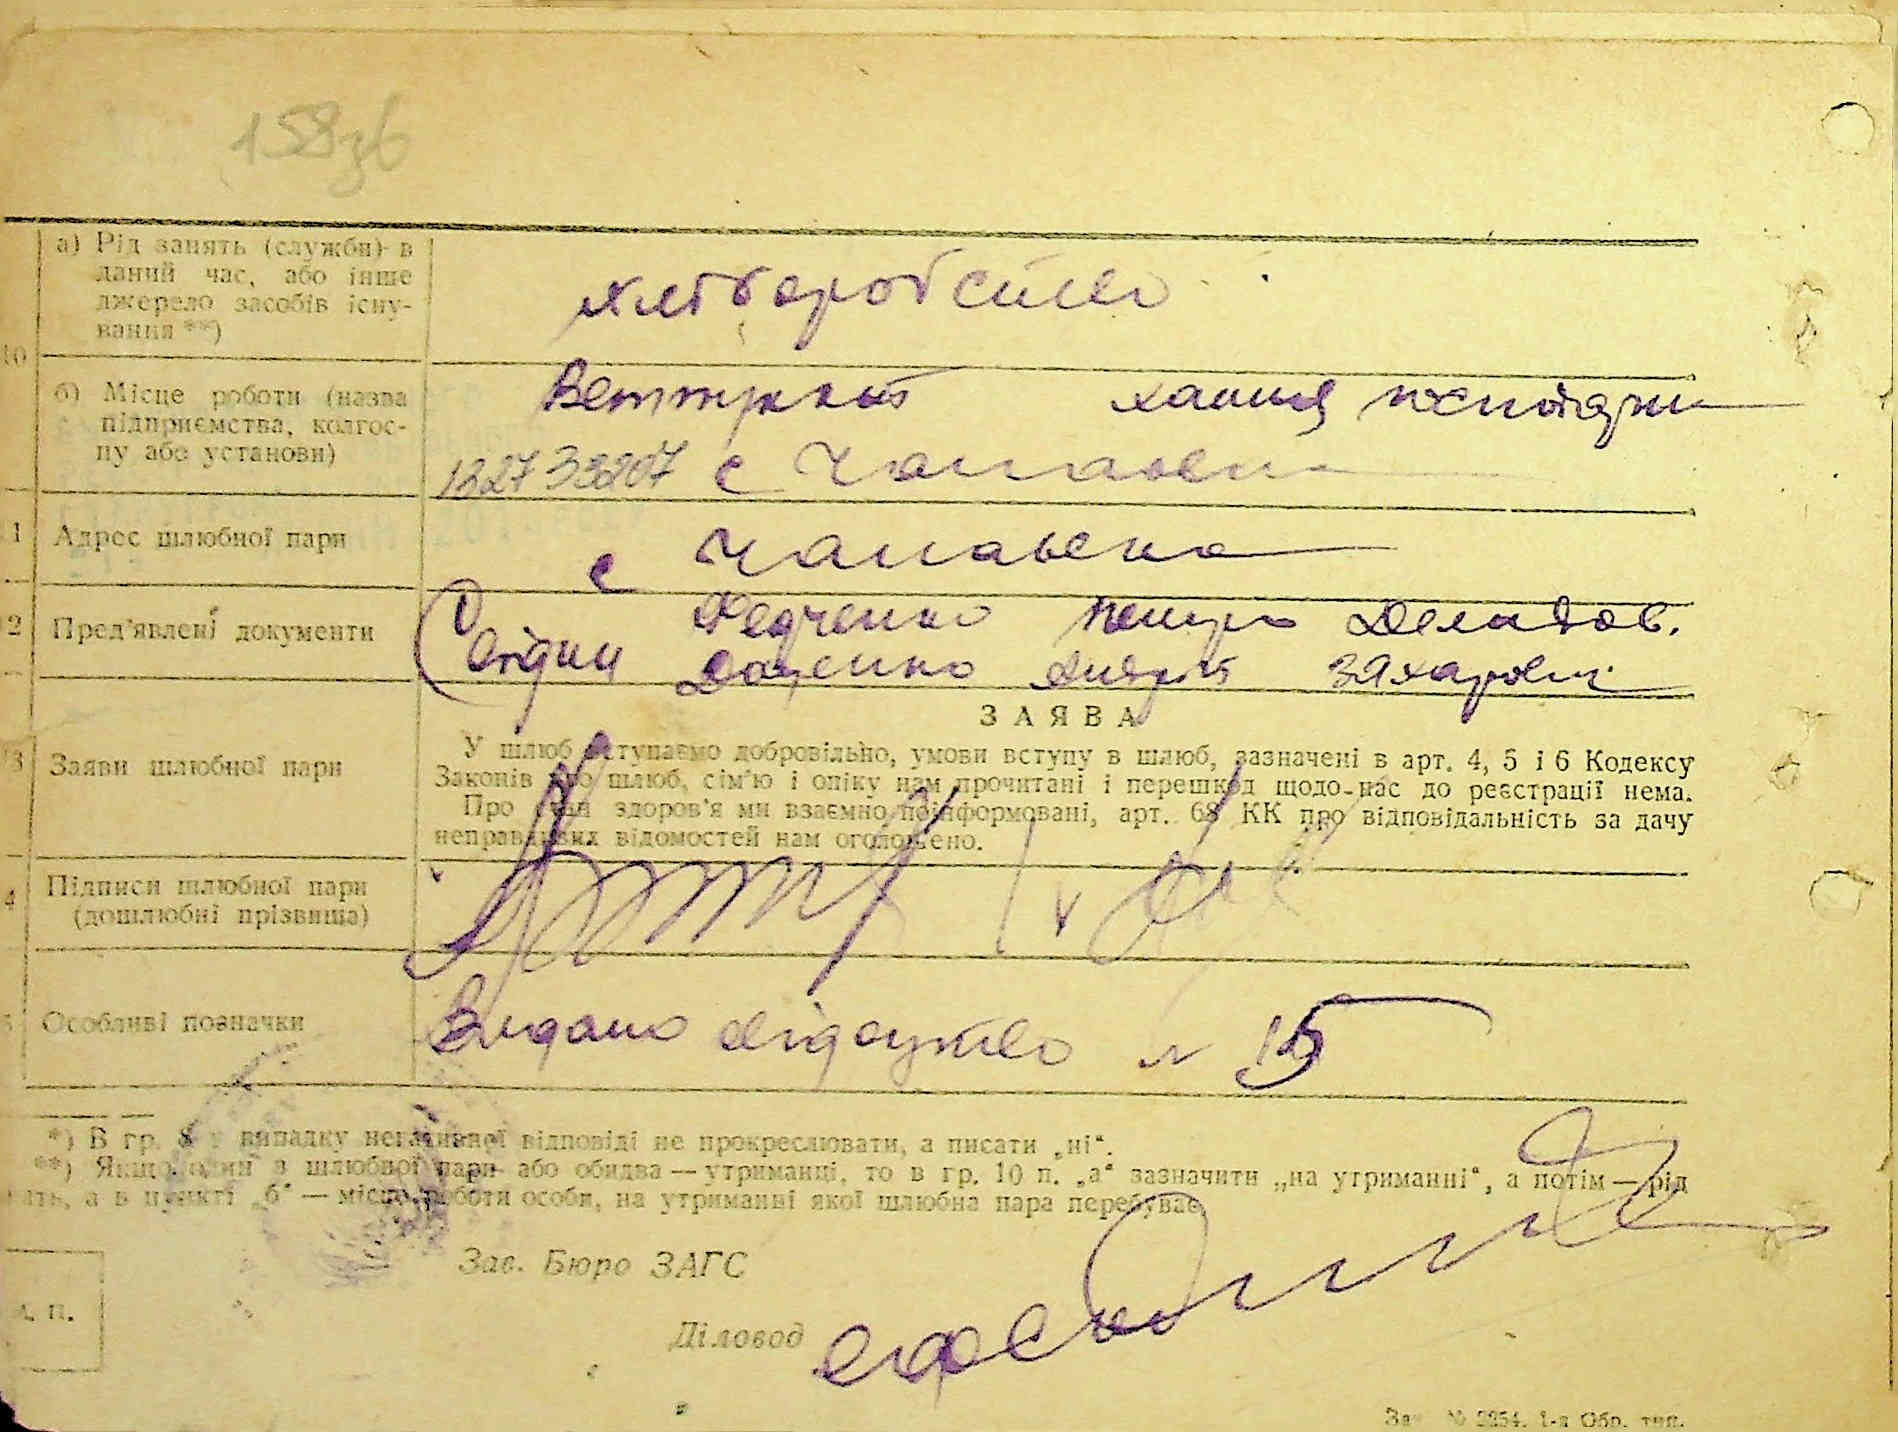 158зв
а) Рід занять (служби) в
даний час, або інше
джерело засобів існу-
вання **)
хліборобство
10
б) Місце роботи (назва
підприємства, колгос-
пу або установи)
Ветпункт хатня господарка
с Чапаєвка
11 Адрес шлюбної пари
с Чапаєвка
12 Пред'явлені документи
Свідки Федченко Петро
Доценко Андрій Захарович
ЗАЯВА
13 Заяви шлюбної пари
У шлюб вступаємо добровільно, умови вступу в шлюб, зазначені в арт. 4, 5 і 6 Кодексу
Законів про шлюб, сім'ю і опіку нам прочитані і перешкод щодо нас до реєстрації нема.
Про стан здоров'я ми взаємно поінформовані, арт. 68 КК про відповідальність за дачу
неправдивих відомостей нам оголошено.
4 Підписи шлюбної пари
(дошлюбні прізвища)
5 Особливі позначки
Видано свідоцтво № 15
*) В гр. 8 у випадку негативної відповіді не прокреслювати, а писати „ні“.
**) Якщо один з шлюбної пари або обидва — утриманці, то в гр. 10 п. „а“ зазначити „на утриманні“, а потім — рід
ать, а в пункті „б“ — місце роботи особи, на утриманні якої шлюбна пара перебуває
Зав. Бюро ЗАГС
м. п.
Діловод
Зак. № 2254. 1-а Обр. тип.